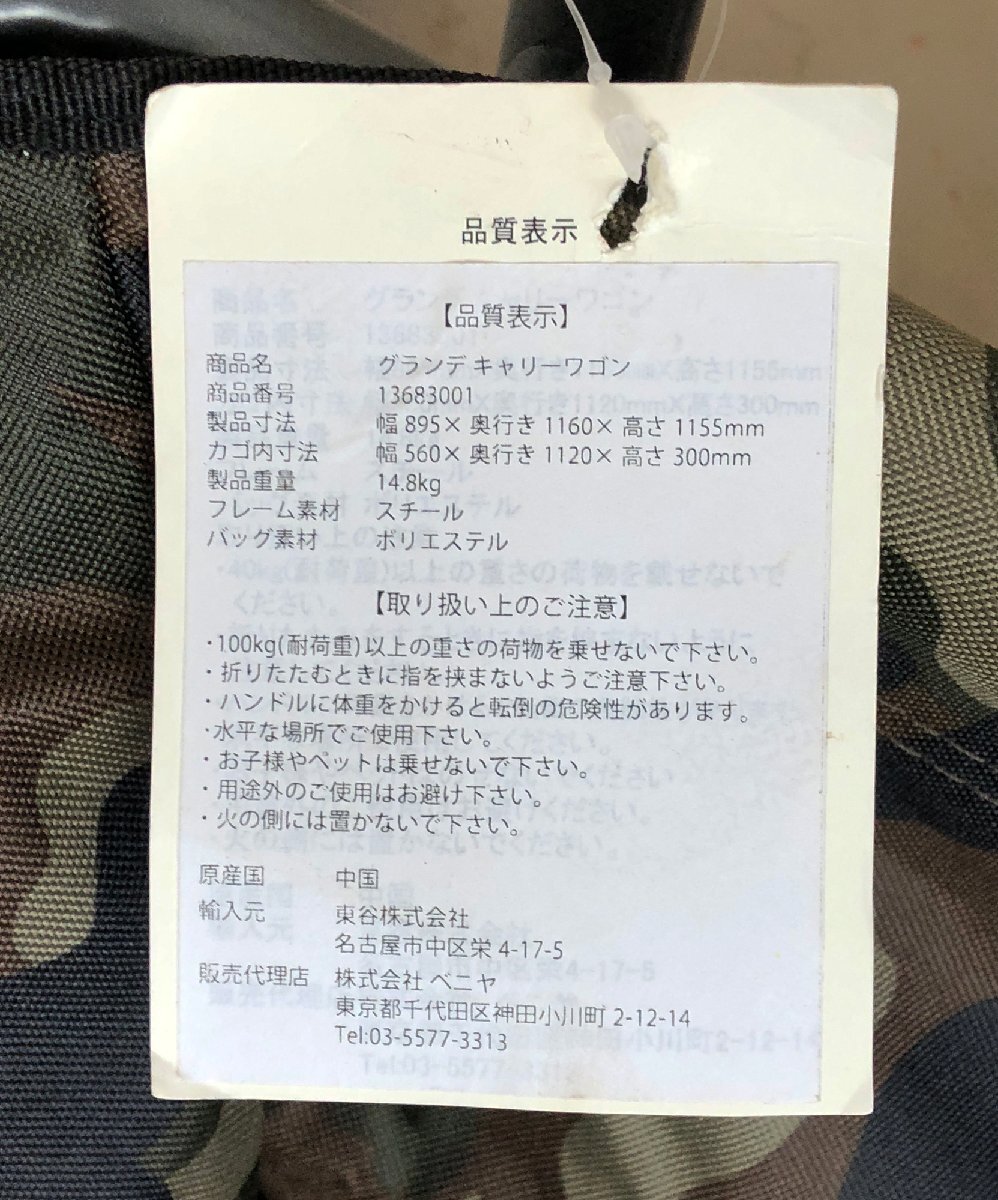 品質表示
【品質表示】
商品名 グランデキャリーワゴン
商品番号 13683001
製品寸法 幅 895× 奥行き 1160× 高さ 1155mm
カゴ内寸法 幅 560× 奥行き 1120× 高さ 300mm
製品重量 14.8kg
フレーム素材 スチール
バッグ素材 ポリエステル
【取り扱い上のご注意】
・100kg(耐荷重)以上の重さの荷物を乗せないで下さい。
・折りたたむときに指を挟まないようご注意下さい。
・ハンドルに体重をかけると転倒の危険性があります。
・水平な場所でご使用下さい。
・お子様やペットは乗せないで下さい。
・用途外のご使用はお避け下さい。
・火の側には置かないで下さい。
原産国 中国
輸入元 東谷株式会社
名古屋市中区栄 4-17-5
販売代理店 株式会社 ベニヤ
東京都千代田区神田小川町 2-12-14
Tel:03-5577-3313